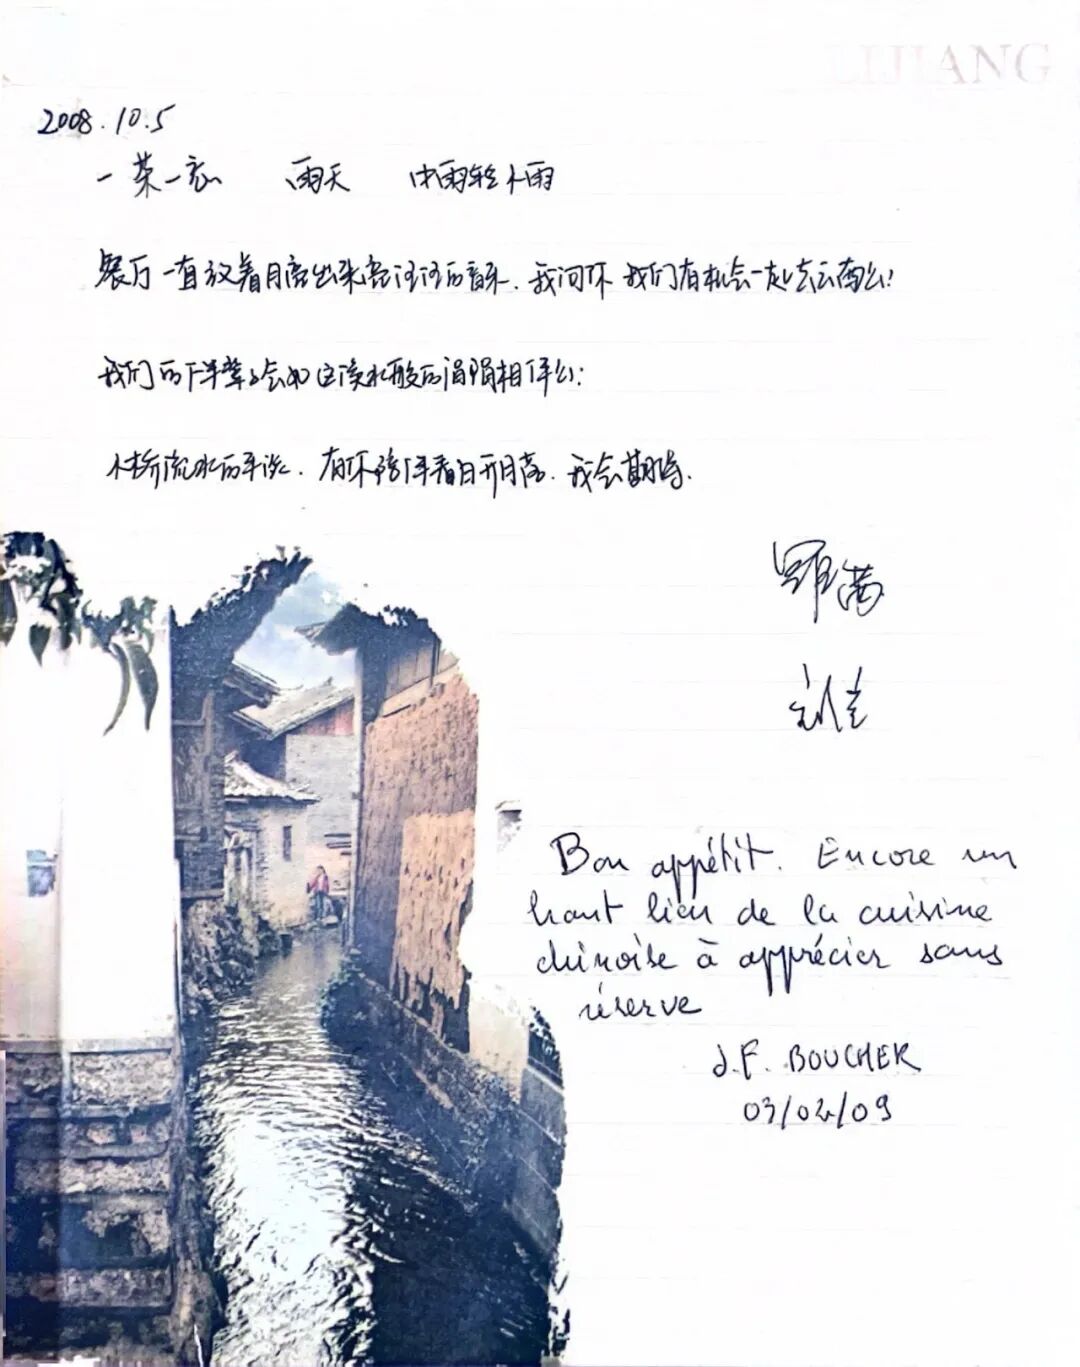 LIJIANG
2008.10.5
一茶一 雨天 中雨转小雨
餐厅一直放着月亮出来亮汪汪的音乐. 我问你 我们有机会一起去云南么!
我们的 会如这溪水般的涓涓相伴么:
小桥流水的平淡. 有你陪伴着日升月落. 我会期待.
罗茜
Bon appétit. Encore un
haut lieu de la cuisine
chinoise à apprécier sans
réserve
J.F. BOUCHER
03/02/09